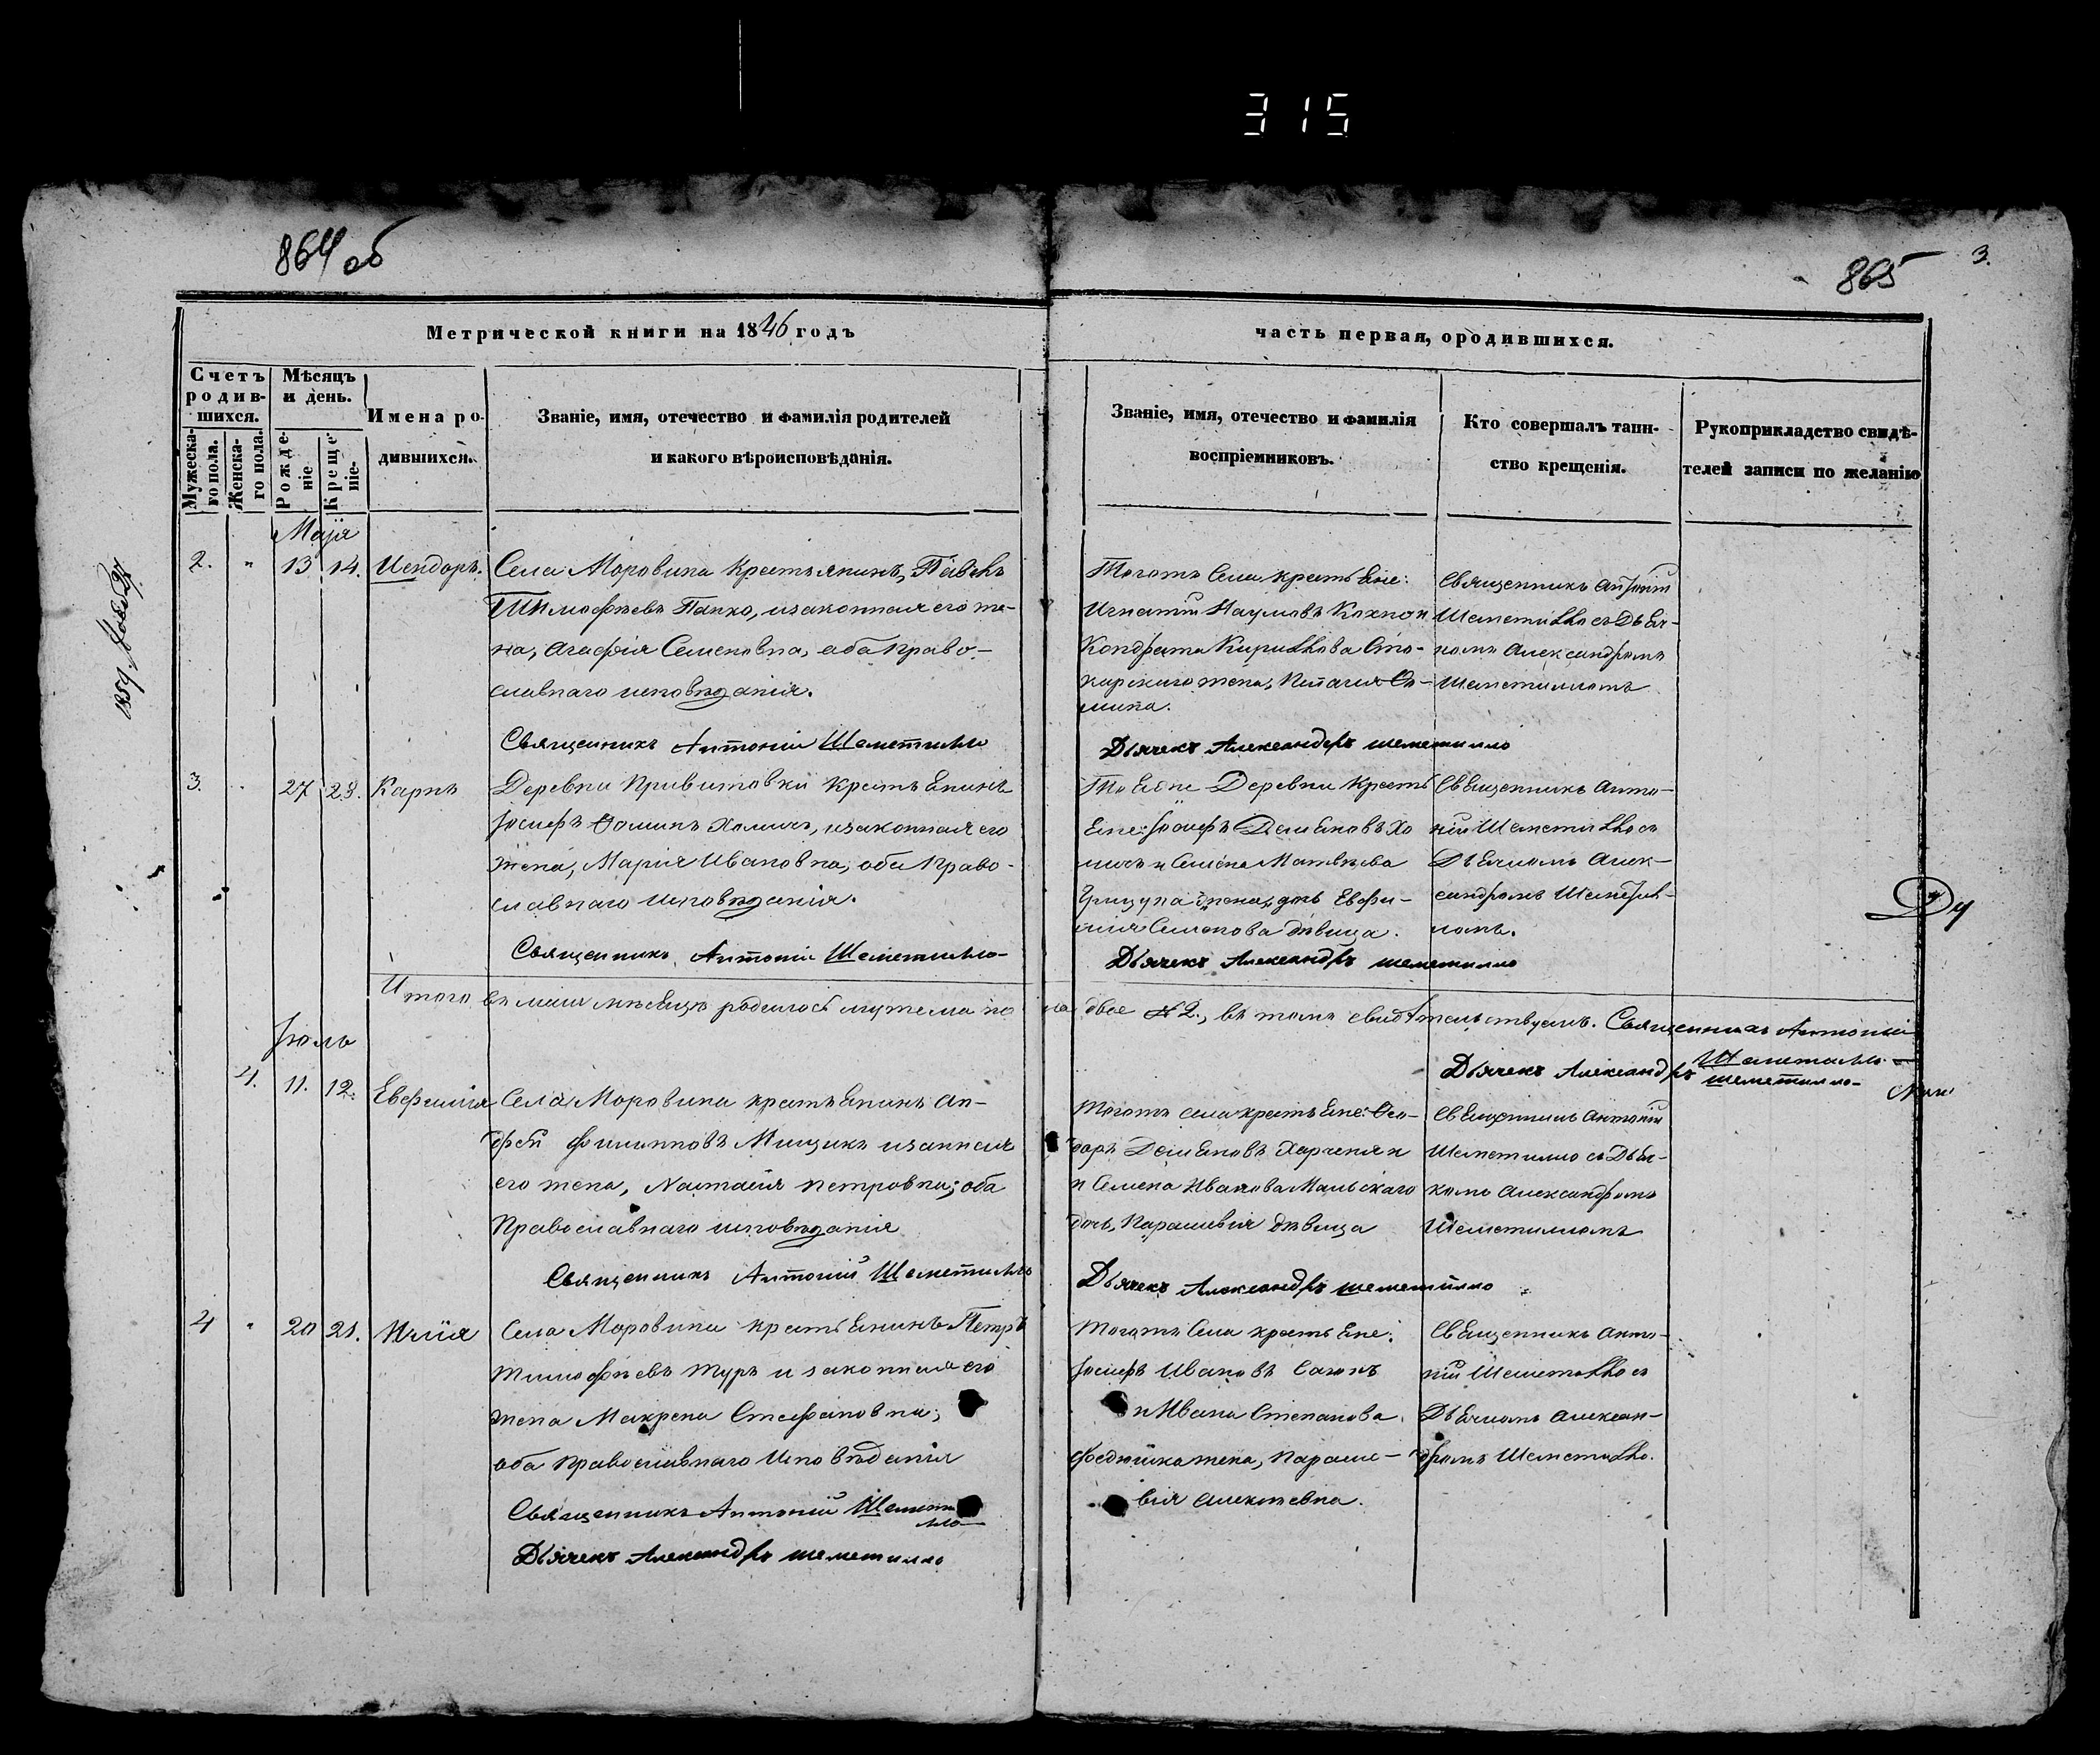 315
864 об
865
3.
Метрической книги на 1846 годъ
часть первая, ородившихся.
Счетъ родив-шихся.
Мѣсяцъ и день.
Имена ро-
дившихся.
Званіе, имя, отечество и фамилія родителей
и какого вѣроисповѣданія.
Званіе, имя, отечество и фамилія
воспріемниковъ.
Кто совершалъ таин-
ство крещенія.
Рукоприкладство свидѣ-
телей записи по желанію
Мужеска-го пола.
Женска-го пола.
Рожде-ніе
Креще-ніе.
Маія
2. " 13 14. Исидоръ.
Села Моровина крестьянинъ, Павелъ
Тимофѣевъ Папко, изаконная его же-
на, Агафія Семеновна, оба право-
славнаго исповѣданія.
Священникъ Антоній Шеметилло
Тогожъ Села крестьяне:
Игнатій Наумовъ
Кондрата Кирилова
жена, Пелагия Фо-
мина.
Дьячекъ Александръ шеметилло
Священникъ Антоній
Шеметилло съ Дьяч-
комъ Александромъ
Шеметилломъ
3. " 27 28. Карпъ
Деревни Привитовки крестьянинъ
Іосифъ Фоминъ Холичъ, изаконная его
жена, Марія Ивановна, оба Право-
славнаго исповѣданія.
Священникъ Антоній Шеметилло
Тояже Деревни кресть
яне: Іосифъ Демяновъ Хо
личъ и Семена Матвѣева
дочь Евфи-
мия Семенова дѣвица.
Дьячекъ Александръ шеметилло
Священникъ Анто-
ній Шеметилло съ
Дьячкомъ Алек-
сандромъ Шеметил-
ломъ.
Итого въ маи мѣсяцѣ родилось мужеска по ла двое 2., въ томъ свидѣтельствуемъ. Священникъ Антоній
Шеметилло
Дьячекъ Александръ шеметилло
Іюль
4. 11. 12. Евфимія
Села Моровина крестьянинъ Ан-
дрей Филипповъ Мищикъ
его жена, Настасія петровна; оба
Православнаго исповѣданія
Священникъ Антоній Шеметилло
Тогожъ села крестьяне: Фео-
доръ Демяновъ
и Семена Иванова Мальскаго
дочь, Параскевія дѣвица
Дьячекъ Александръ шеметилло
Священникъ Антоній
Шеметилло съ Дьяч-
комъ Александромъ
Шеметилломъ
4 " 20 21. Илія
Села Моровина крестьянинъ Петръ
Тимофѣевъ Туръ и законная его
жена Макрена Стефановна;
оба православнаго Исповѣданія
Священникъ Антоній Шемети
лло
Дьячекъ Александръ шеметилло
Тогожъ Села крестьяне:
Іосифъ Ивановъ
и Ивана Степанова
жена, Параске-
вія Алексѣевна.
Священникъ Анто-
ній Шеметилло съ
Дьячкомъ Алексан-
дромъ Шеметилло.